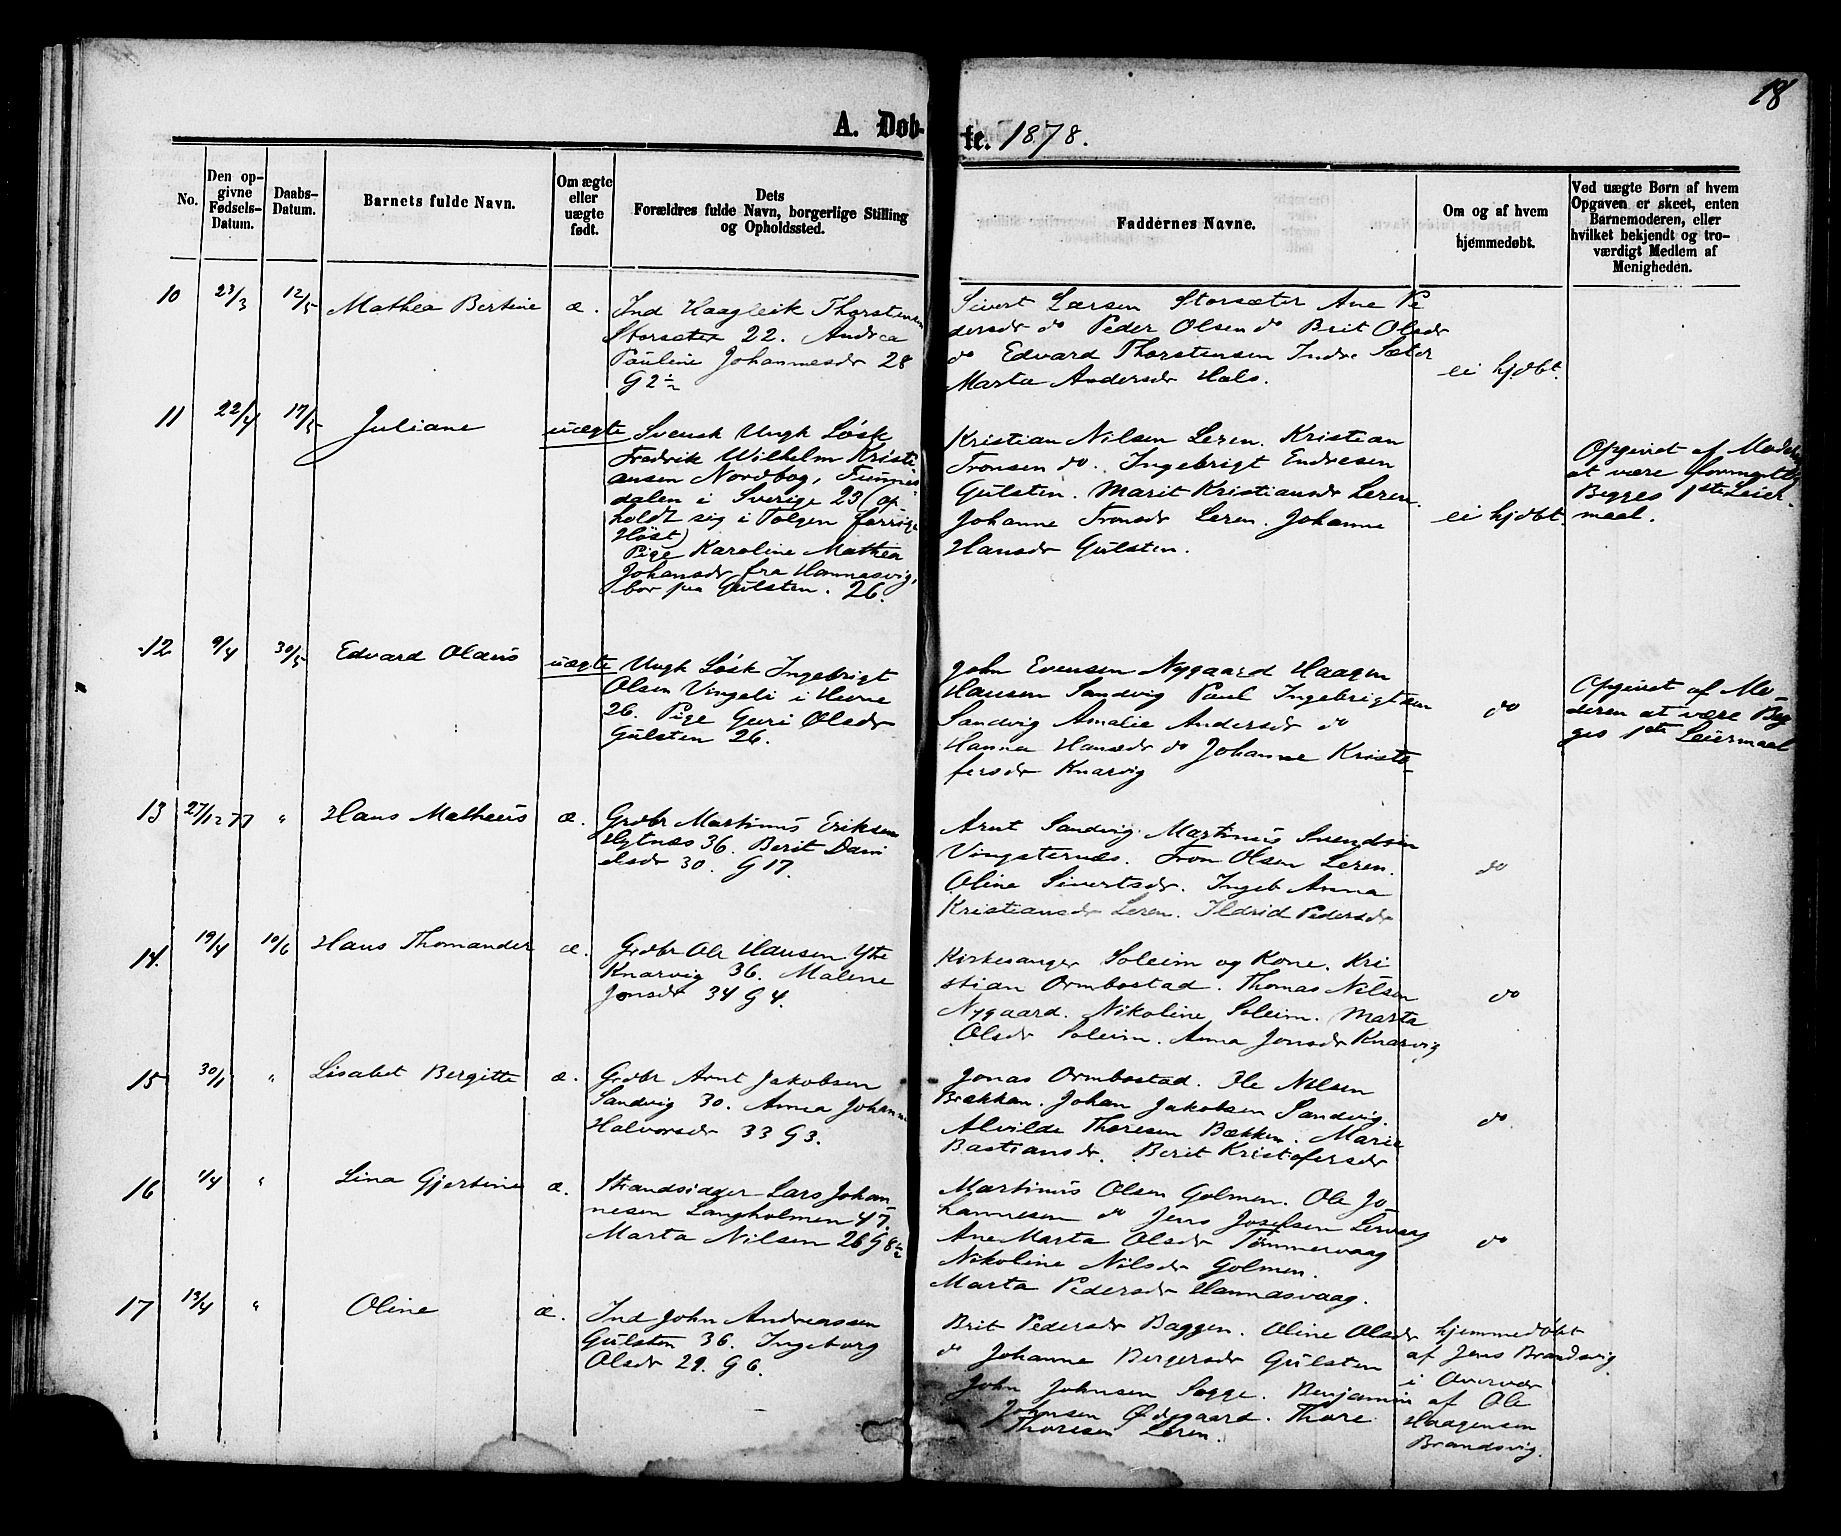 18
A. Døb-
te. 1878.
No.
Den op-
givne
Fødsels-
Datum.
Daabs-
Datum.
Barnets fulde Navn.
Om ægte
eller
uægte
født.
Dets
Forældres fulde Navn, borgerlige Stilling
og Opholdssted.
Faddernes Navne.
Om og af hvem
hjemmedøbt.
Ved uægte Børn af hvem
Opgaven er skeet, enten
Barnemoderen, eller
hvilket bekjendt og tro-
værdigt Medlem af
Menigheden.
10 23/3 12/5 Mathea Bertine æ.
Ind Haagleik Thorstensen
Storsæter 22. Andrea
Pauline Johannesdr 28
G 2½
Sivert Larsen Storsæter Ane Pe
dersdr do Peder Olsen do Brit Olsdr
do Edvard Thorstensen Indre Sæter
Marta Andersdr Hals.
ei hjdbt.
11 22/4 17/5 Juliane uægte
Svensk Ungk Løsk
Fredrik Wilhelm Kristi-
ansen Nordbog, Funnes
dalen i Sverige 23 (op-
holdt sig i Tolgen forrige
Høst)
Pige Karoline Mathea
Johansdr fra Hannasvig,
bor paa Gulsten. 26.
Kristian Nilsen Leren. Kristian
Tronsen do. Ingebrigt Endresen
Gulsten. Marit Kristiansdr Leren.
Johanne Tronsdr Leren. Johanne
Hansdr Gulsten.
ei hjdbt.
Opgivet af Moderen
at være
Begges 1ste Leier
maal.
12 9/4 30/5 Edvard Olaus uægte
Ungk Løsk Ingebrigt
Olsen Vingeli i Hevne
26. Pige Guri Olsdr
Gulsten 26.
John Evensen Nygaard Haagen
Hansen Sandvig Paul Ingebrigtsen
Sandvig Amalie Andersdr do
Hanna Hansdr do Johanne Kristo-
fersdr Knarvig
do
Opgivet af Mo-
deren at være Beg-
ges 1ste Leiermaal
13 27/12 77 " Hans Matheus æ.
Grdbr Martinus Eriksen
Hytnæs 36. Berit Dani
elsdr 30. G 17.
Arnt Sandvig. Martinus Svendsen
Vingsternes. Tron Olsen Leren.
Oline Sivertsdr. Ingeb Anna
Kristiansdr Leren. Ildrid Pedersdr
do
14. 19/4 10/6 Hans Thomander æ.
Grdbr Ole Hansen Ytre
Knarvig 36. Malene
Jonsdr 34 G 4.
Kirkesanger Soleim og Kone. Kri
stian Ormbostad. Thomas Nilsen
Nygaard. Nikoline Soleim. Marta
Olsdr Soleim. Anna Jonsdr Knarvig
do
15 30/1 " Lisabet Bergitte æ.
Grdbr Arnt Jakobsen
Sandvig 30. Anna Johanna
Halvorsdr 33 G 3.
Jonas Ormbostad. Ole Nilsen
Brækken. Johan Jakobsen Sandvig.
Alvilde Thoresen Bækken. Marie
Bastiansdr. Berit Kristofersdr
do.
16 1/4 " Lina Gjertine æ.
Strandsidder Lars Johan-
nesen Langholmen 47.
Marta Nilsen 26 G 8½
Martinus Olsen Golmen. Ole Jo-
hannesen do Jens Josefsen Lervaag
Ane Marta Olsdr Tømmervaag
Nikoline Nilsdr Golmen.
Marta Pedersdr Hannasvaag.
do
17 13/4 " Oline æ.
Ind John Andreassen
Gulsten 36. Ingeborg
Olsdr 29. G 6.
Brit Pedersdr Baggen. Oline Olsdr
do Johanne Bergersdr Gulsten
John Johnsen Sogge. Benjamin
Johnsen Ødegaard. Thore
Thoresen Leren.
hjemmedøbt
af Jens Brandsvig
i Overvær
af Ole
Haagensen
Brandsvig.